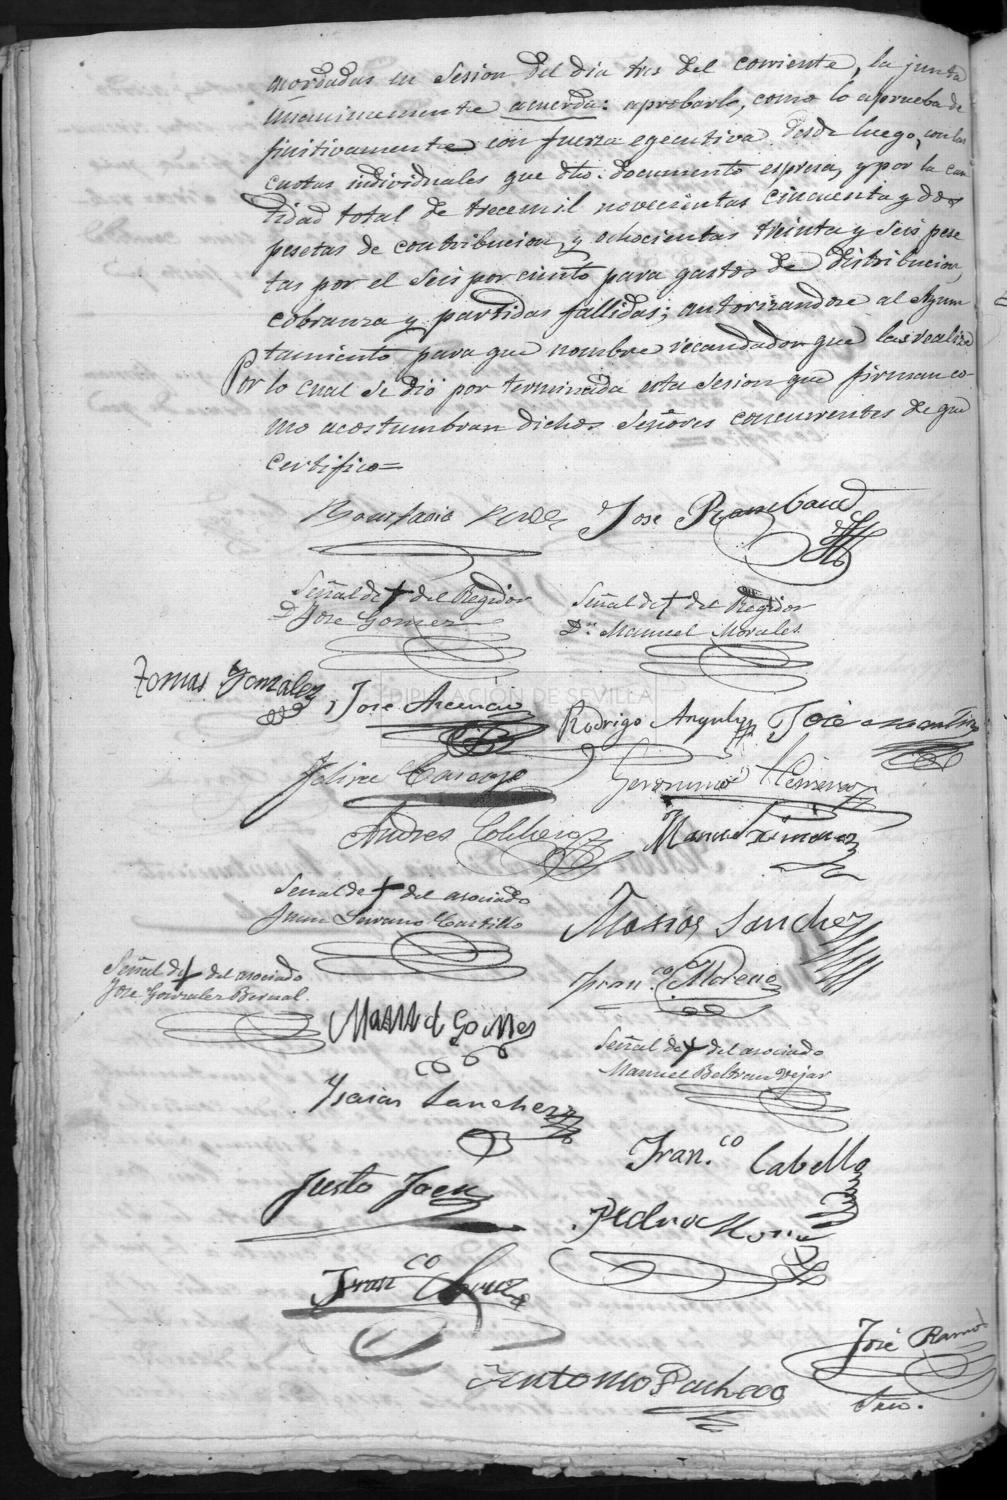 acordadas en Sesion del dia tres del corriente, la junta
unanimemente acuerda: aprobarlo, como lo aprueba de
finitivamente con fuerza egecutiva desde luego, con las
cuotas individuales que dho. documento espresa, y por la can
tidad total de trecemil novecientas cincuenta y dos
pesetas de contribucion, y ochocientas treinta y seis pese
tas por el seis por ciento para gastos de distribucion,
cobranza y partidas fallidas; autorizandose al Ayun
tamiento para que nombre recaudador que las realize
Por lo cual se dió por terminada esta Sesion que firman co
mo acostumbran dichos Señores concurrentes de que
certifico=
Bonifacio José Rambaud
Señal de † del Regidor
Dn. José Gomez
Señal de † del Regidor
Dn. Manuel Morales
Tomas Gonzalez José Rodrigo Angulo José Martinez
DIPUTACIÓN DE SEVILLA
Geronimo Herrera
Andres Manuel Ximenez
Señal de † del asociado
Juan Serrano Castillo
Sanchez
Señal de † del asociado
José Gonzalez Bernal
Franco. Moreno
Manuel Gomes
Señal de † del asociado
Manuel Beltran Vejar
Ysaias Sanchez
Fran.co Cabello
Justo Jaen
Pedro
Franco
Antonio Pacheco
José Ramos
Srio.